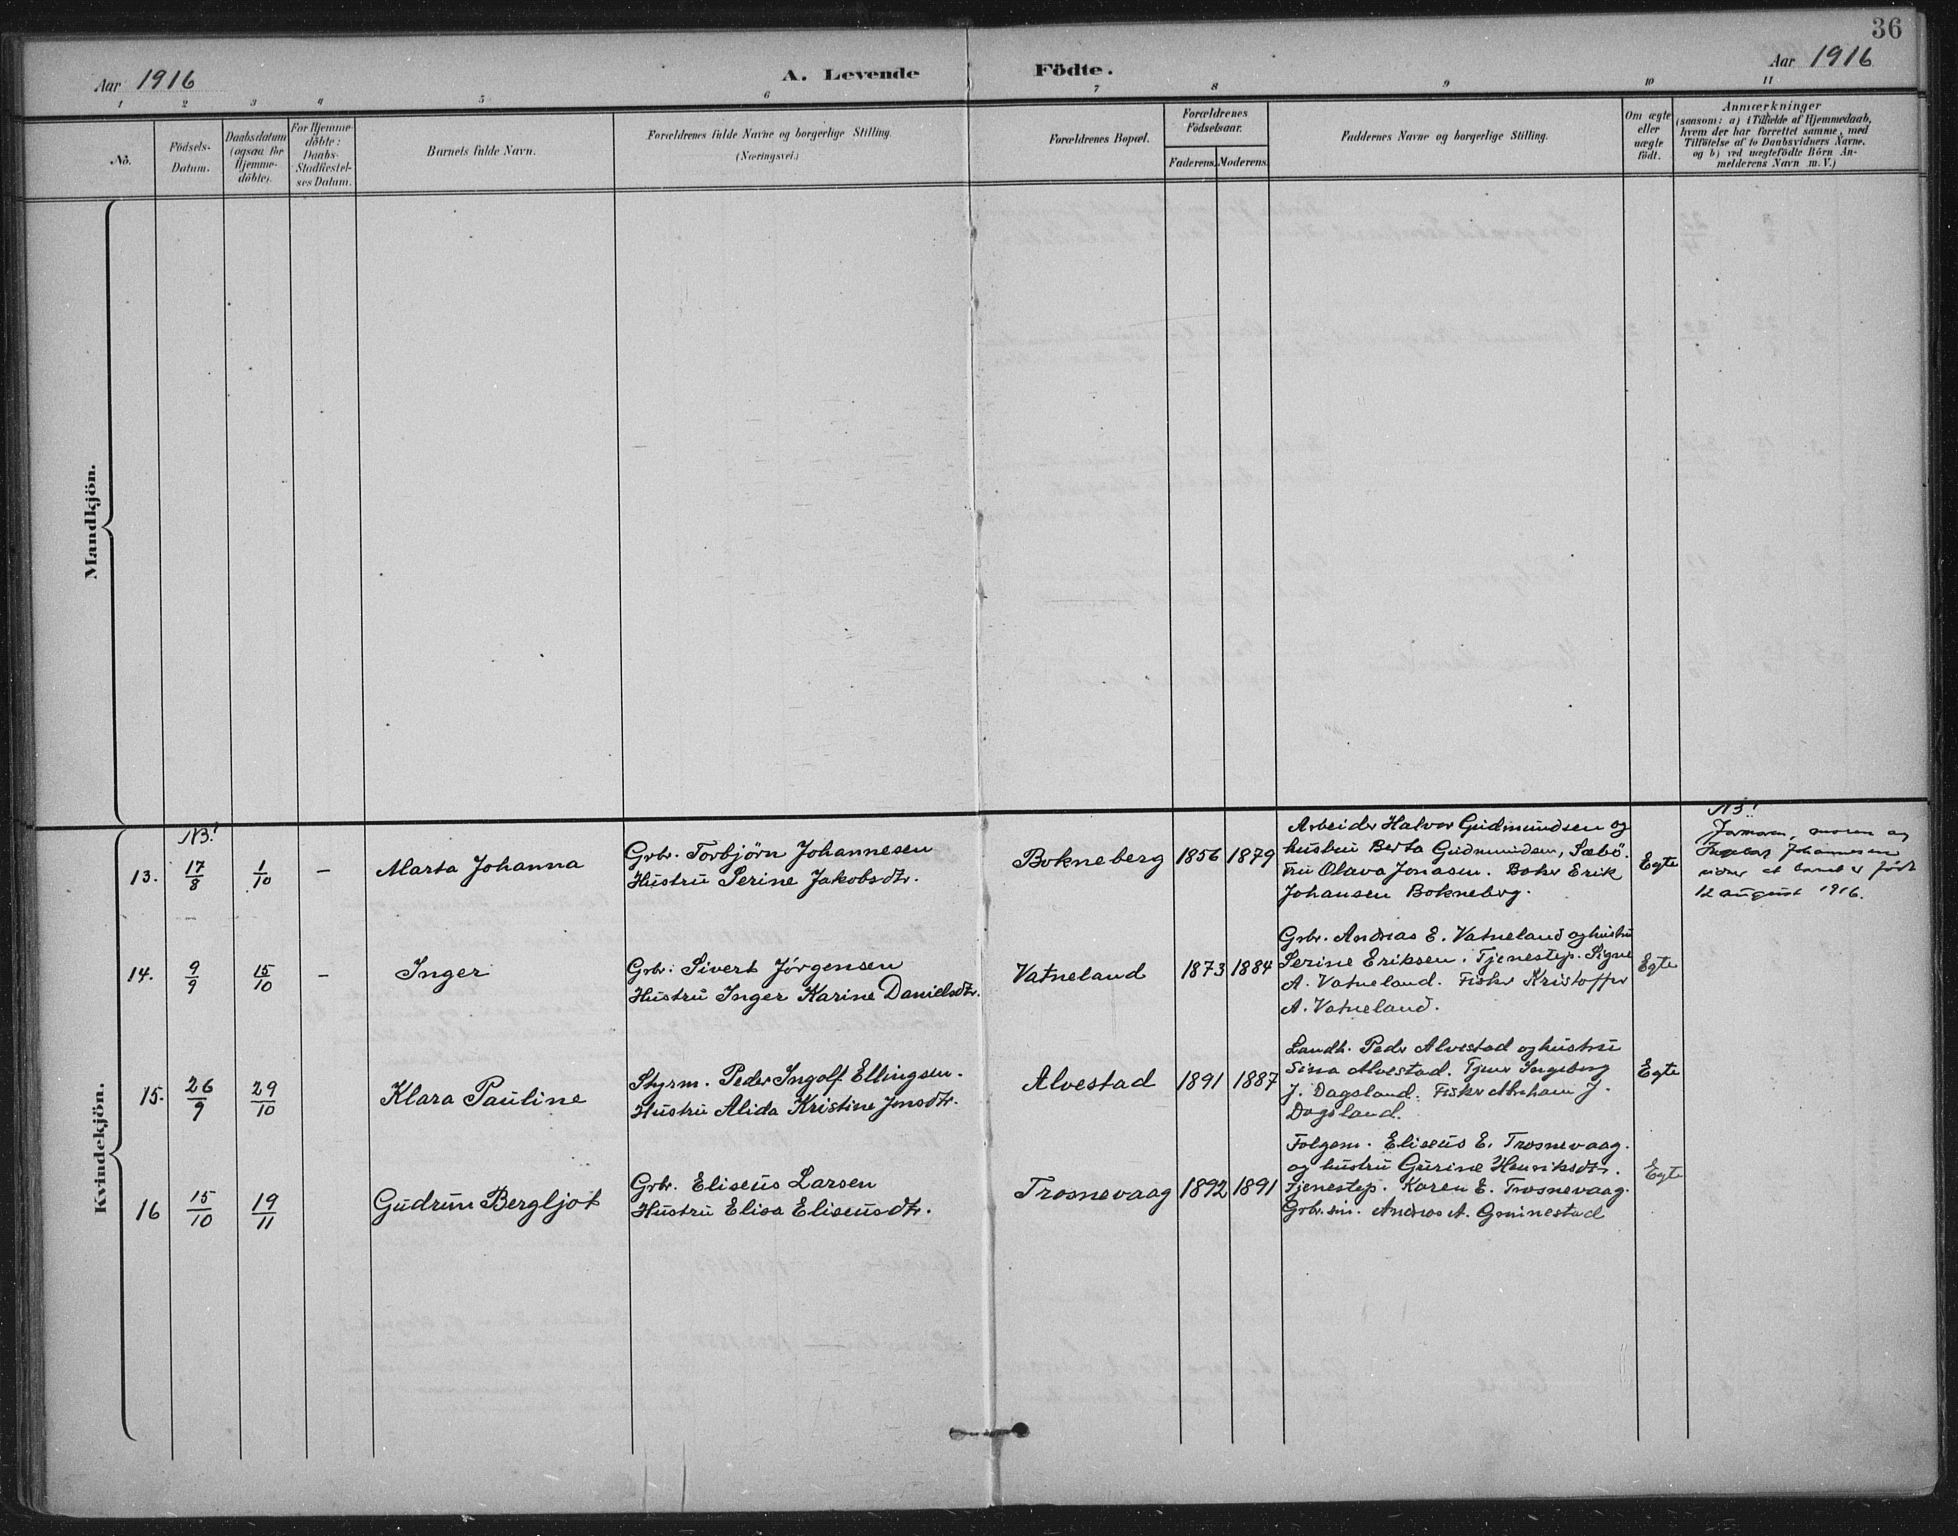 36
Aar 1916
A. Levende Födte.
Aar 1916
1 2 3 4 5 6 7 8 9 10 11
No.
Födsels-
Datum.
Daabsdatum
(ogsaa for
Hjemme-
döbte).
For Hjemme-
döbte:
Daabs-
Stadfæstel-
ses Datum.
Barnets fulde Navn.
Forældrenes fulde Navne og borgerlige Stilling.
(Næringsvei.)
Forældrenes Bopæl.
Forældrenes
Födselsaar.
Faderens. Moderens.
Faddernes Navne og borgerlige Stilling.
Om ægte
eller
uægte
födt.
Anmærkninger
(saasom: a) i Tilfælde af Hjemmedaab,
hvem der har forrettet samme, med
Tilföielse af to Daabsvidners Navne,
og b) ved uægtefödte Börn An-
melderens Navn m. V.)
Mandkjön.
Kvindekjön.
NB!
13. 17/8 1/10 – Marta Johanna
Grbr. Torbjørn Johannesen
Hustru Serine Jakobsdtr.
Bokneberg 1856 1879
Arbeider Halvor Gudmundsen og
hustru Berta Gudmundsen, Sæbö.
Fru Olava Jonasen. Boker Erik
Johansen Bokneberg.
Egte
NB!
Jormoren, moren og
Ingeborg Johannesen
vidner at barnet er født
12 august 1916.
14. 9/9 15/10 – Inger
Grbr. Sivert Jørgensen
Hustru Inger Karine Danielsdtr.
Vatneland 1873 1884
Grbr. Andreas E. Vatneland og hustru
Serine Eriksen. Tjenestep. Signe
A. Vatneland. Fisker Kristoffer
A. Vatneland.
Egte
15. 26/9 29/10 Klara Pauline
Styrm. Peder Ingolf Ellingsen.
Hustru Alida Kristine Jonsdtr.
Alvestad 1891 1887
Landh. Peder Alvestad og hustru
Sina Alvestad. Tjener Ingeborg
J. Dagsland. Fisker Abraham J.
Dagsland.
Egte
16 15/10 19/11 Gudrun Bergljot
Grbr. Eliseus Larsen
Hustru Elisa Eliseusdtr.
Trosnevaag 1892 1891
Folgem. Eliseus E. Trosnevaag.
og hustru Gurine Henriksdtr.
Tjenestep. Karen E. Trosnevaag.
Grbr. søn. Andreas A. Grønnestad
Egte